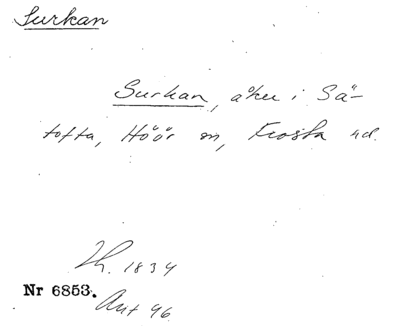 Surkan
Surkan, åker i Sä-
tofta, Höör sn, Frosta hd.
Th. 1834
Nr 6853.
Ant 46